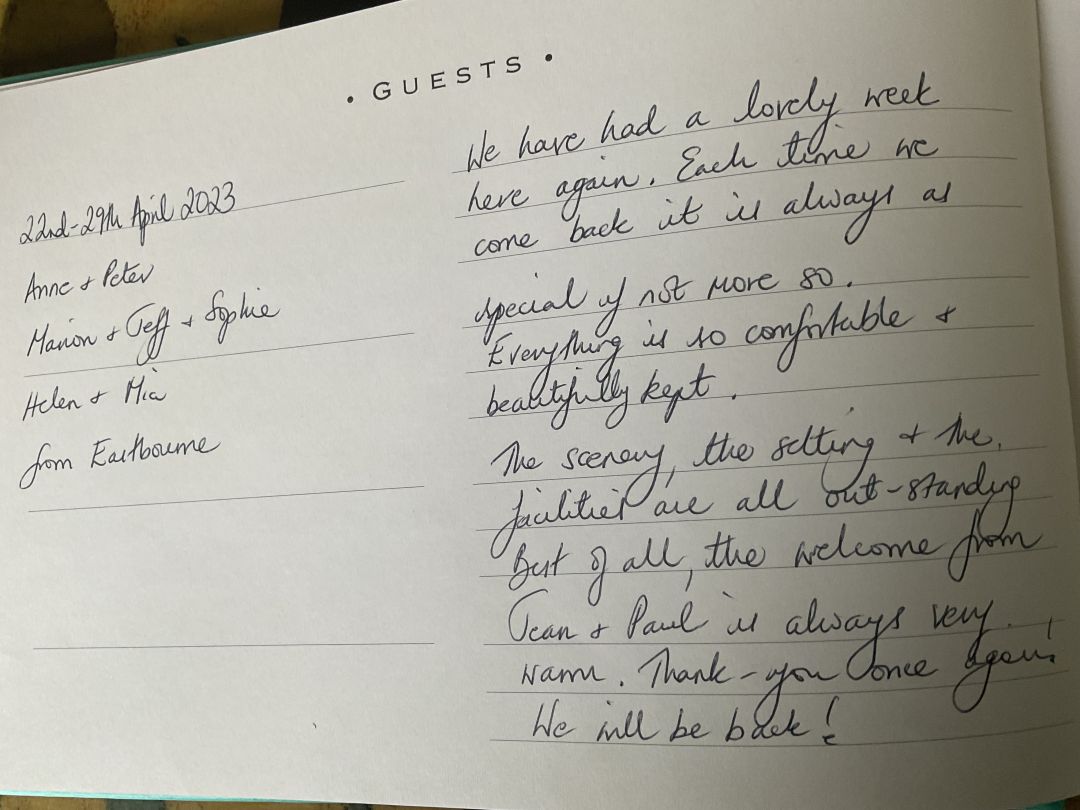 • GUESTS •
22nd-29th April 2023
Anne + Peter
Marion + Jeff + Sophie
Helen + Mia
from Eastbourne
We have had a lovely week
here again. Each time we
come back it is always as
special if not more so.
Everything is so comfortable +
beautifully kept.
The scenery, the setting + the
facilities are all out-standing
Best of all, the welcome from
Jean + Paul is always very
warm. Thank-you once again!
We will be back!